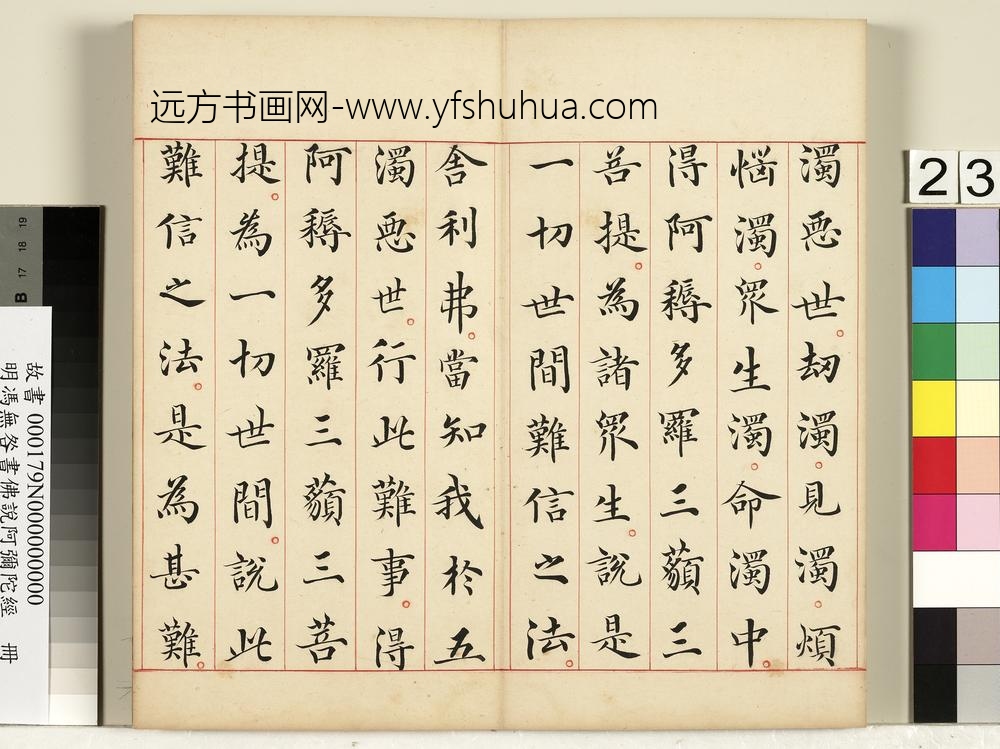 远方书画网-www.yfshuhua.com
濁惡世。劫濁。見濁。煩
惱濁。眾生濁。命濁中。
得阿耨多羅三藐三
菩提。為諸眾生。說是
一切世間難信之法。
舍利弗。當知我於五
濁惡世。行此難事。得
阿耨多羅三藐三菩
提。為一切世間。說此
難信之法。是為甚難。
23
B 17 18 19
故書 000179N000000000
明馮無咎書佛說阿彌陀經 冊